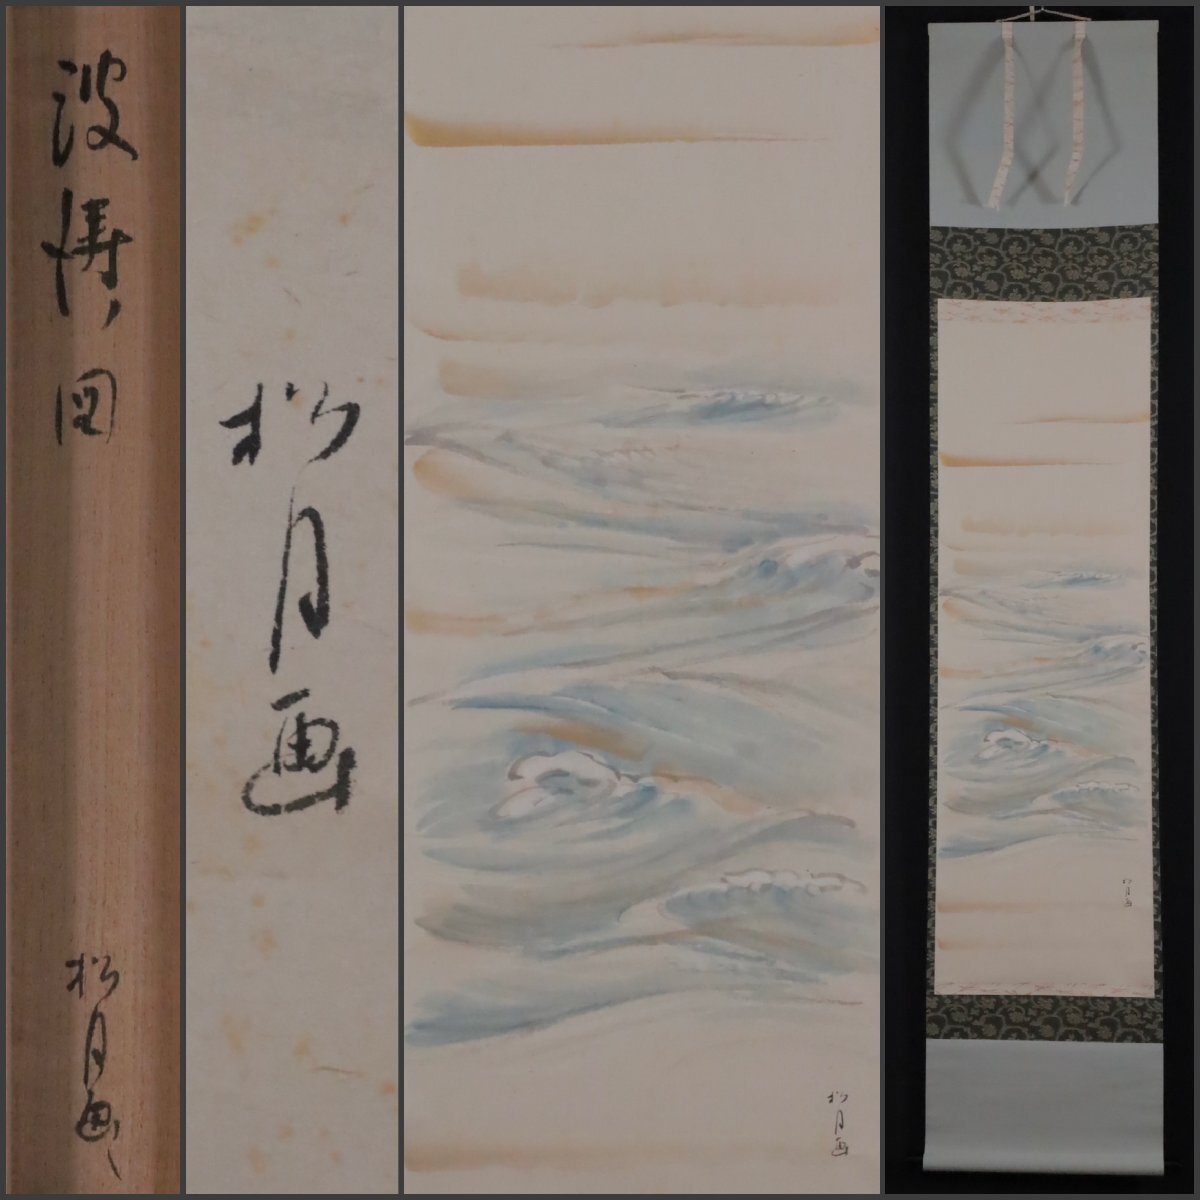 波涛図
松月画
松月画
松月画
松月画